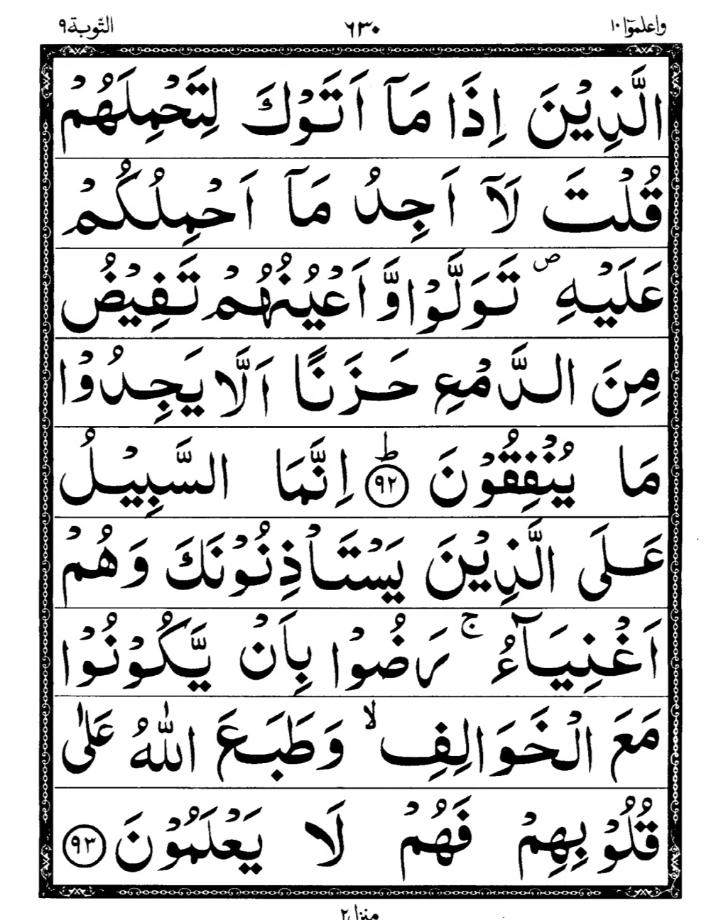 واعلموٓا ١٠ ٦٣٠ التّوبة ٩
الَّذِيْنَ اِذَا مَآ اَتَوْكَ لِتَحْمِلَهُمْ
قُلْتَ لَآ اَجِدُ مَآ اَحْمِلُكُمْ
عَلَيْهِ ۖ تَوَلَّوْا وَّاَعْيُنُهُمْ تَفِيْضُ
مِنَ الدَّمْعِ حَزَنًا اَلَّا يَجِدُوْا
مَا يُنْفِقُوْنَ ؕ ﴿٩٢﴾ اِنَّمَا السَّبِيْلُ
عَلَى الَّذِيْنَ يَسْتَاْذِنُوْنَكَ وَهُمْ
اَغْنِيَآءُ ۚ رَضُوْا بِاَنْ يَّكُوْنُوْا
مَعَ الْخَوَالِفِ ۙ وَطَبَعَ اللّٰهُ عَلٰى
قُلُوْبِهِمْ فَهُمْ لَا يَعْلَمُوْنَ ﴿٩٣﴾
منزل ٢